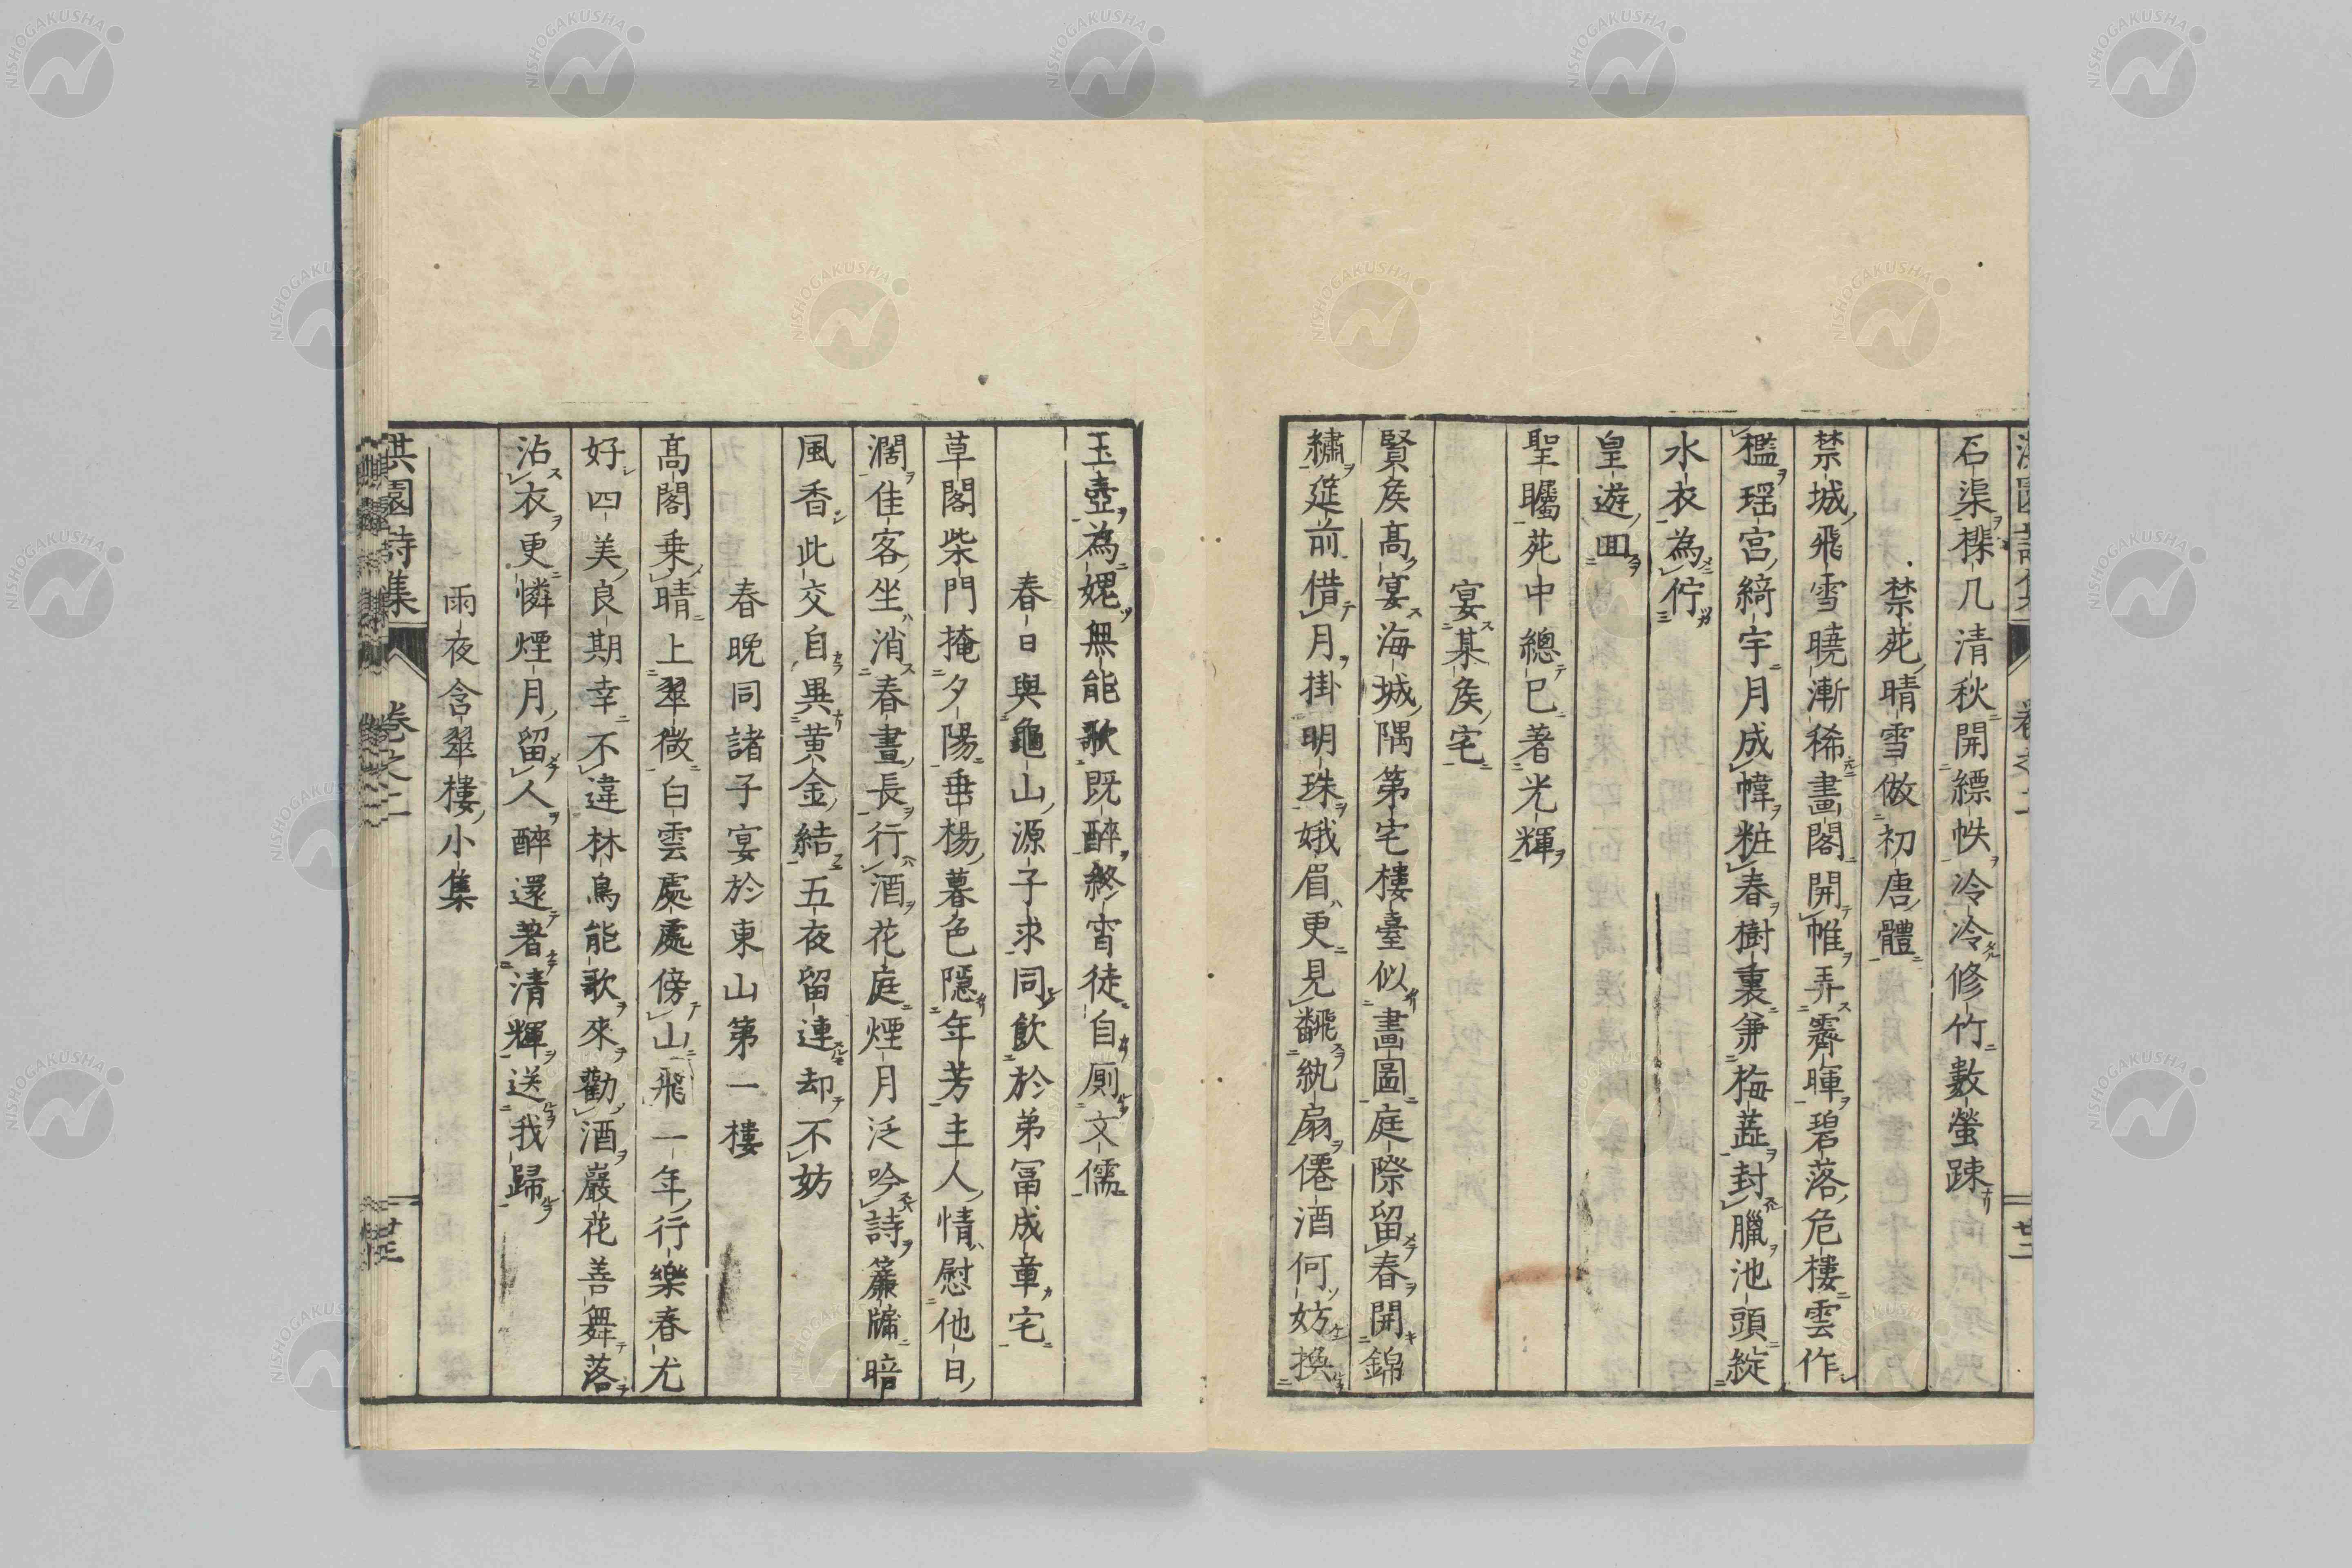 石渠棐几清秋開縹帙冷冷修竹數螢踈
禁苑晴雪倣初唐體
禁城飛雪曉漸稀畫閣開帷弄霽暉碧落危樓雲作
檻瑶宮綺宇月成幃粧春樹裏兼梅蘂封臘池頭綻
水衣為佇
皇遊回
聖矚苑中總已著光輝
宴某矦宅
賢矦高宴海城隅第宅樓臺似畫圖庭際留春開錦
繡筵前借月掛明珠娥眉更見翻紈扇僊酒何妨換
玉壺為媿無能歌既醉終宵徒自厠文儒
春日與龜山源子求同飲於弟冨成章宅
草閣柴門掩夕陽垂楊暮色隱年芳主人情慰他日
濶佳客坐消春晝長行酒花庭煙月泛吟詩簾牖暗
風香此交自異黄金結五夜留連却不妨
春晩同諸子宴於東山第一樓
高閣乗晴上翠微白雲處處傍山飛一年行樂春尤
好四美良期幸不違林鳥能歌來勸酒巖花善舞落
沾衣更憐煙月留人醉還著清輝送我歸
雨夜含翠樓小集
淇園詩集 卷之二
NISHOGAKUSHA